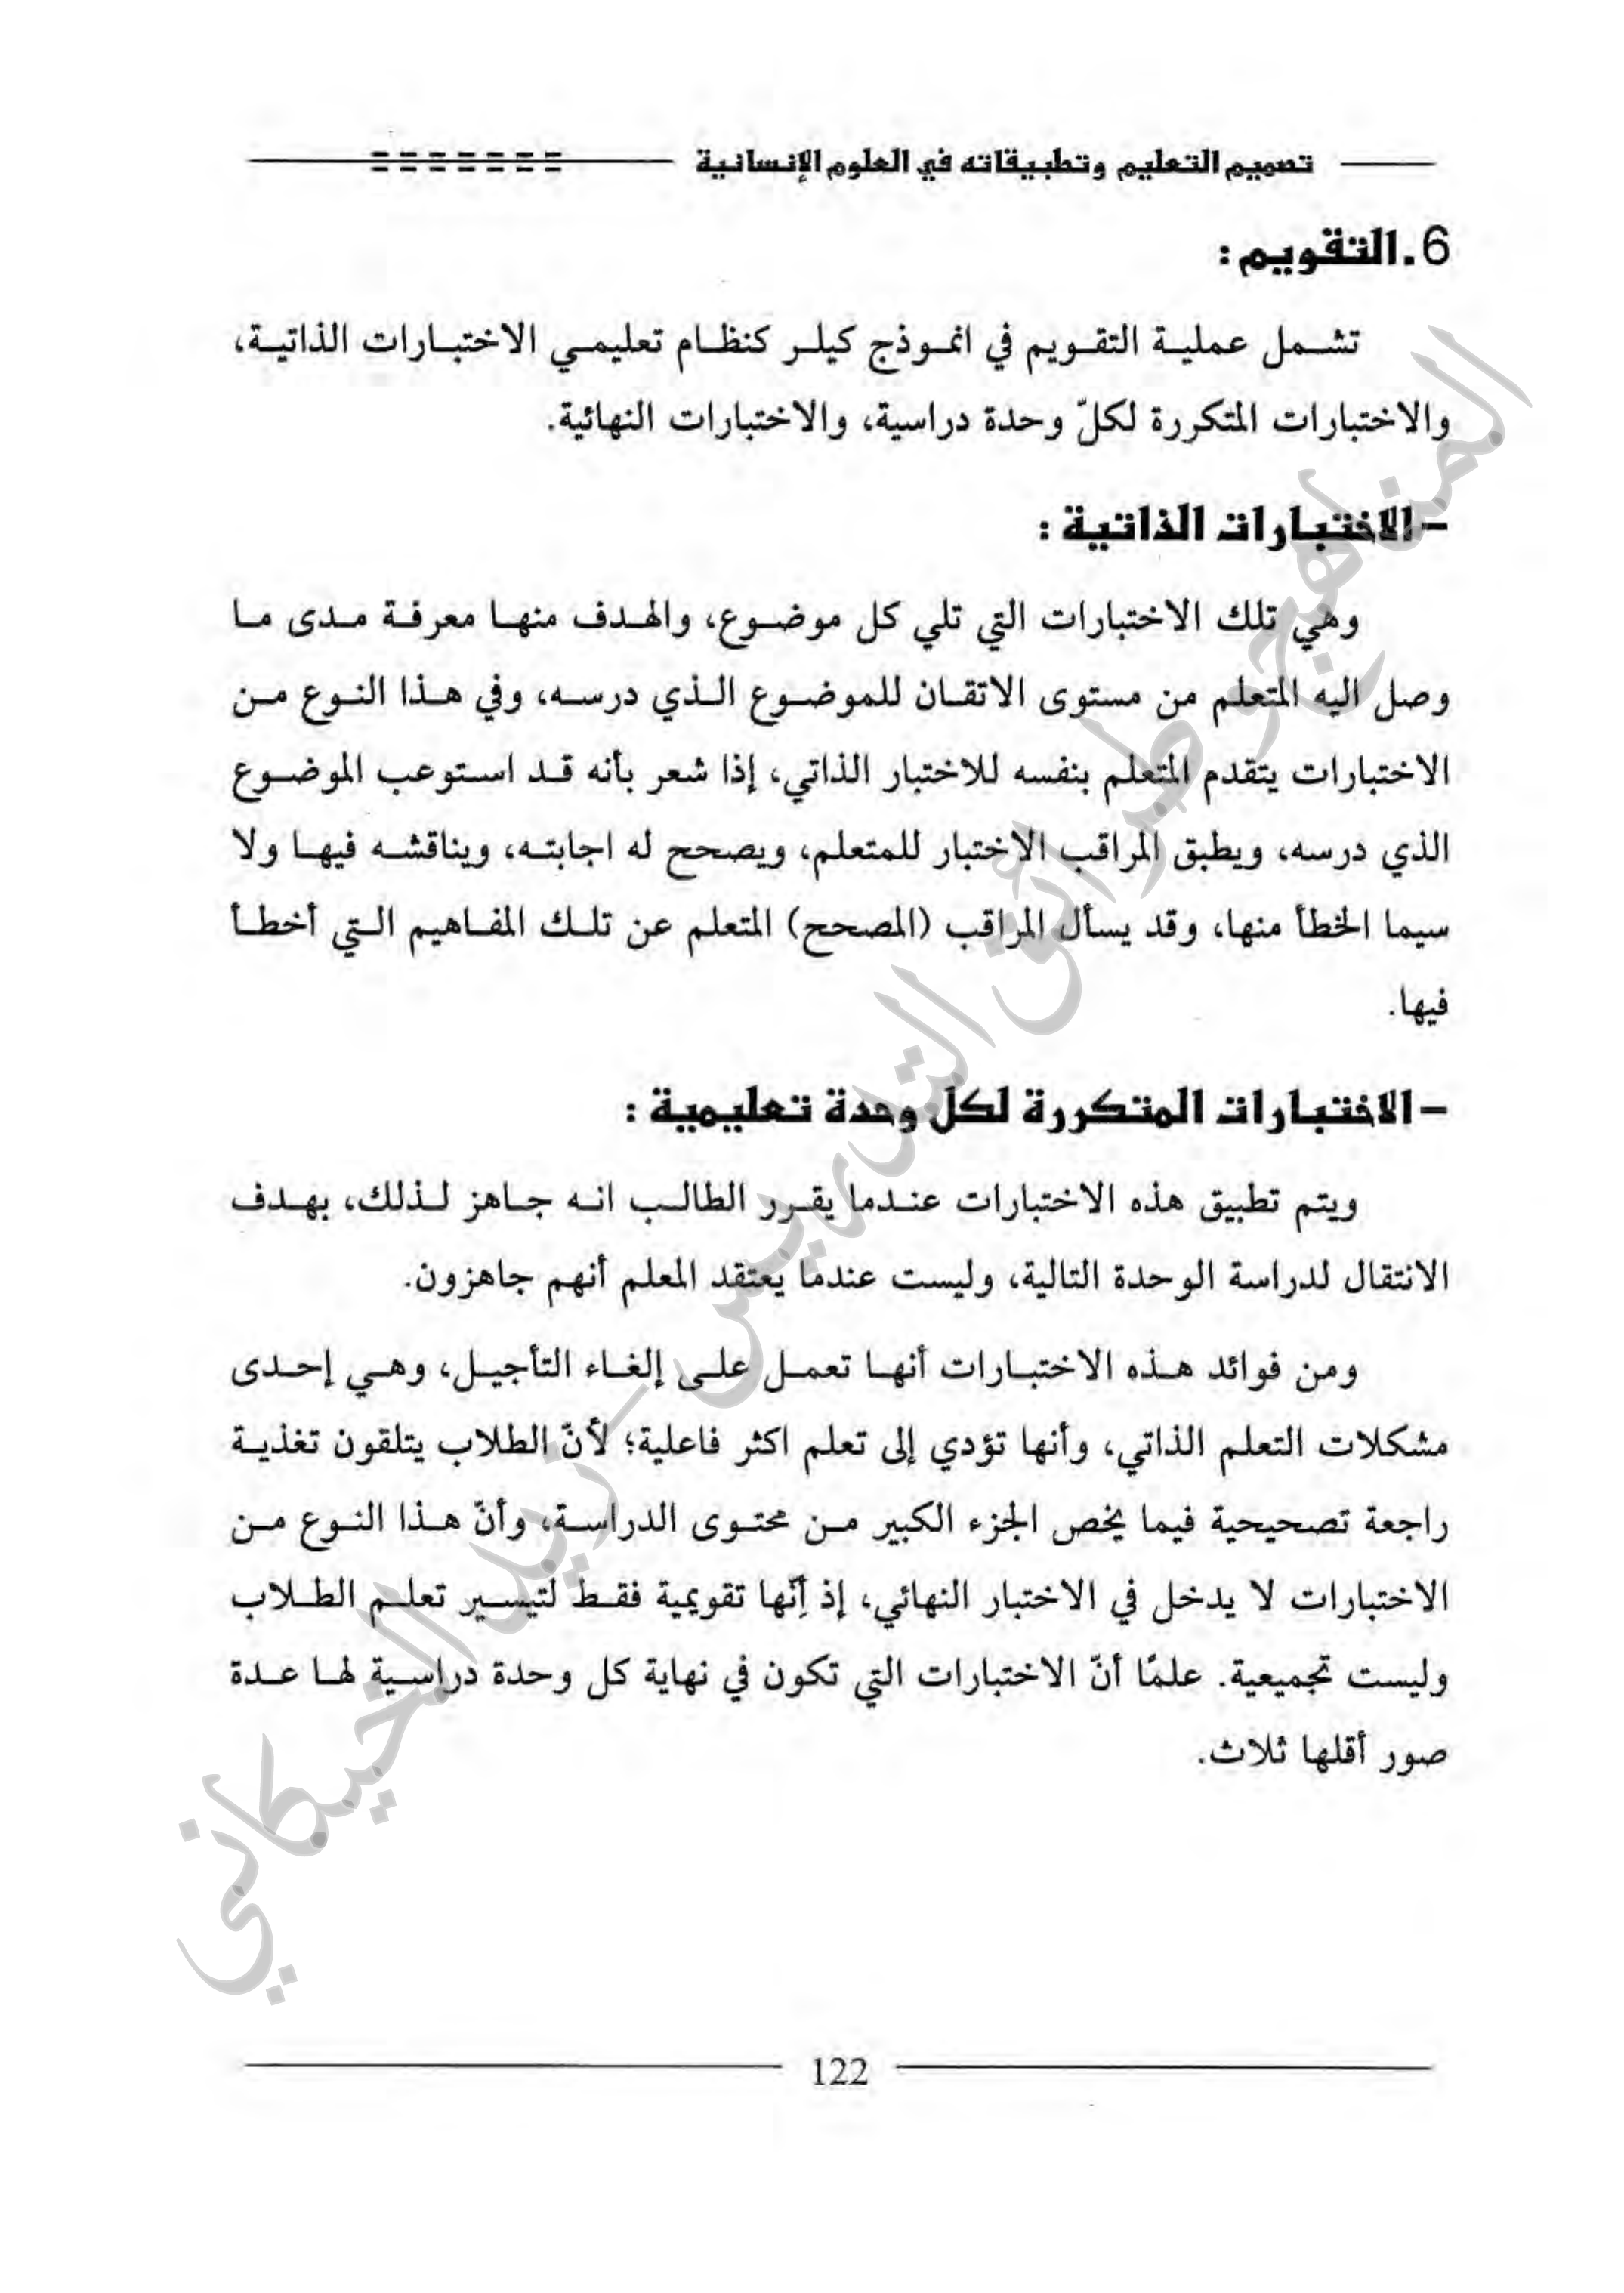 تصميم التعليم وتطبيقاته في العلوم الإنسانية
6.التقويم:
تشمل عملية التقويم في انموذج كيلر كنظام تعليمي الاختبارات الذاتية،
والاختبارات المتكررة لكلّ وحدة دراسية، والاختبارات النهائية.
–الاختبارات الذاتية:
وهي تلك الاختبارات التي تلي كل موضوع، والهدف منها معرفة مدى ما
وصل اليه المتعلم من مستوى الاتقان للموضوع الذي درسه، وفي هذا النوع من
الاختبارات يتقدم المتعلم بنفسه للاختبار الذاتي، إذا شعر بأنه قد استوعب الموضوع
الذي درسه، ويطبق المراقب الاختبار للمتعلم، ويصحح له اجابته، ويناقشه فيها ولا
سيما الخطأ منها، وقد يسأل المراقب (المصحح) المتعلم عن تلك المفاهيم التي أخطأ
فيها.
–الاختبارات المتكررة لكل وحدة تعليمية:
ويتم تطبيق هذه الاختبارات عندما يقرر الطالب انه جاهز لذلك، بهدف
الانتقال لدراسة الوحدة التالية، وليست عندما يعتقد المعلم أنهم جاهزون.
ومن فوائد هذه الاختبارات أنها تعمل على إلغاء التأجيل، وهي إحدى
مشكلات التعلم الذاتي، وأنها تؤدي إلى تعلم اكثر فاعلية؛ لأنّ الطلاب يتلقون تغذية
راجعة تصحيحية فيما يخص الجزء الكبير من محتوى الدراسة، وأنّ هذا النوع من
الاختبارات لا يدخل في الاختبار النهائي، إذ إنّها تقويمية فقط لتيسير تعلم الطلاب
وليست تجميعية. علمًا أنّ الاختبارات التي تكون في نهاية كل وحدة دراسية لها عدة
صور أقلها ثلاث.
المناهج وطرائق التدريس – زيد الخيكاني
122